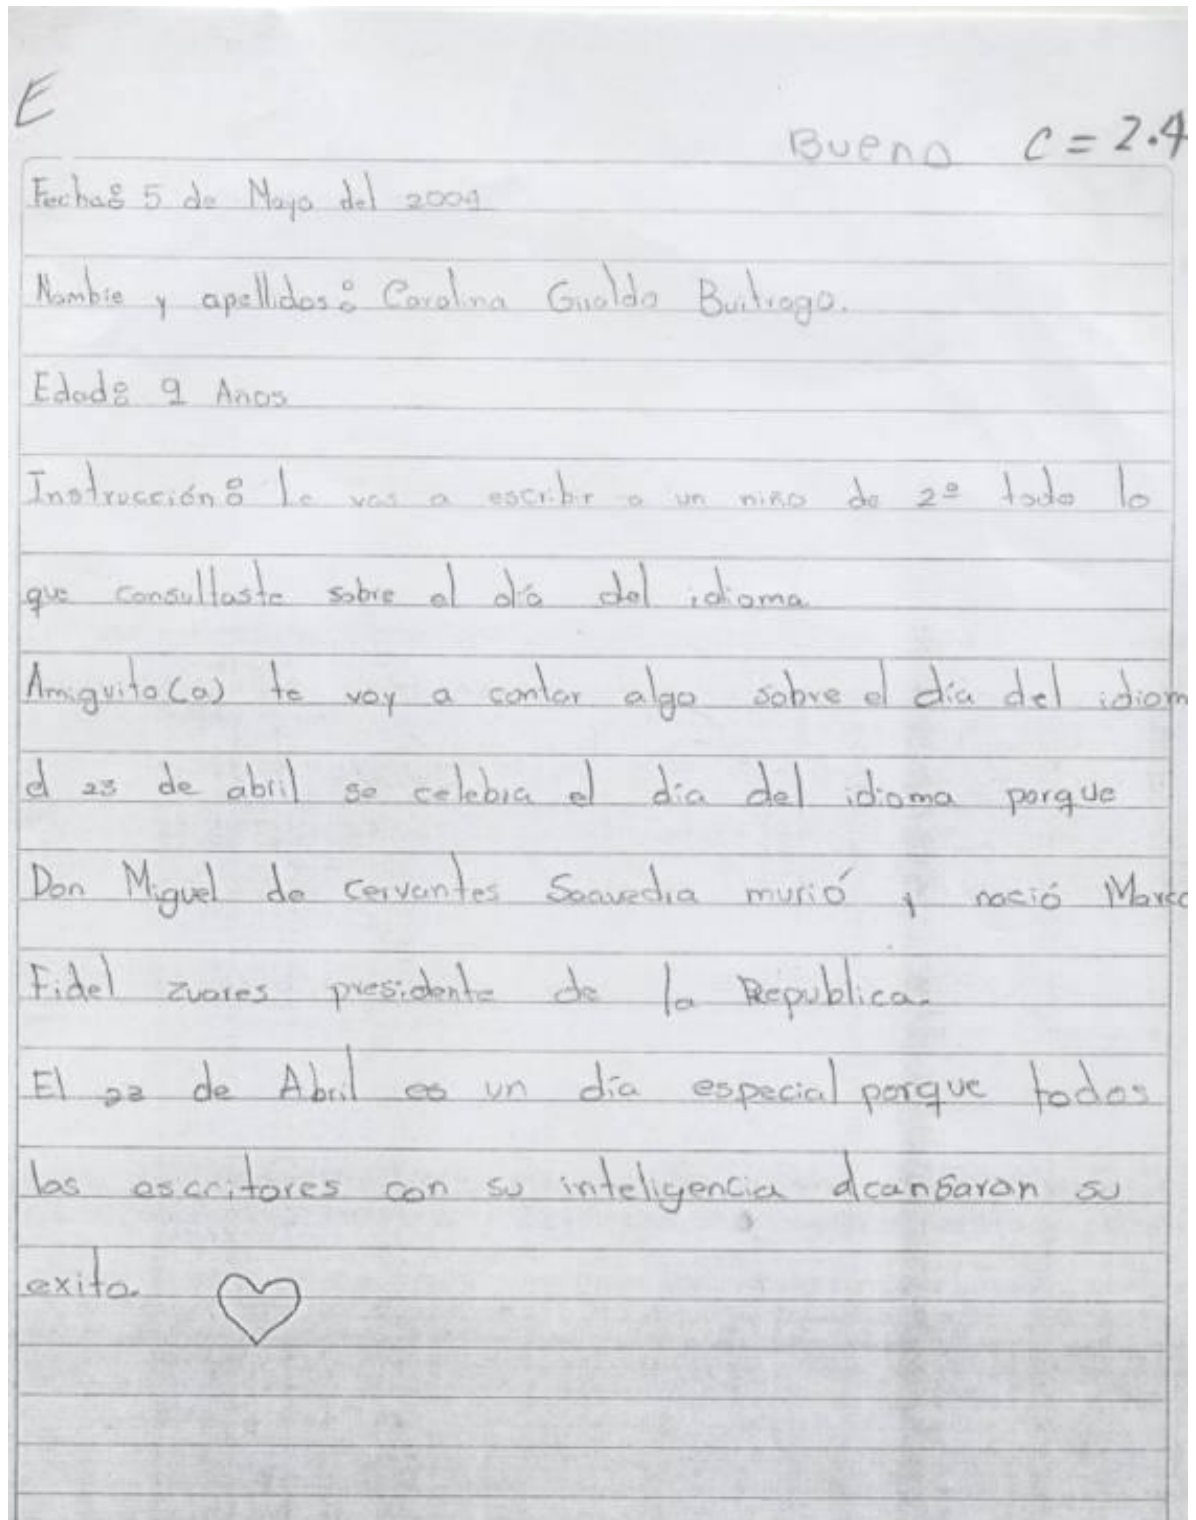 E
Bueno C = 2.4
Fecha: 5 de Mayo del 2009
Nombre y apellidos: Carolina Giraldo Buitrago.
Edad: 9 Anos
Instrucción: Le vas a escribir a un niño de 2º todo lo
que consultaste sobre el día del idioma
Amiguito(a) te voy a contar algo sobre el día del idiom
el 23 de abril se celebra el día del idioma porque
Don Miguel de Cervantes Saavedra murió y nació Marco
Fidel zuares presidente de la Republica.
El de Abril es un día especial porque todos
los escritores con su inteligencia alcansaron su
exito.